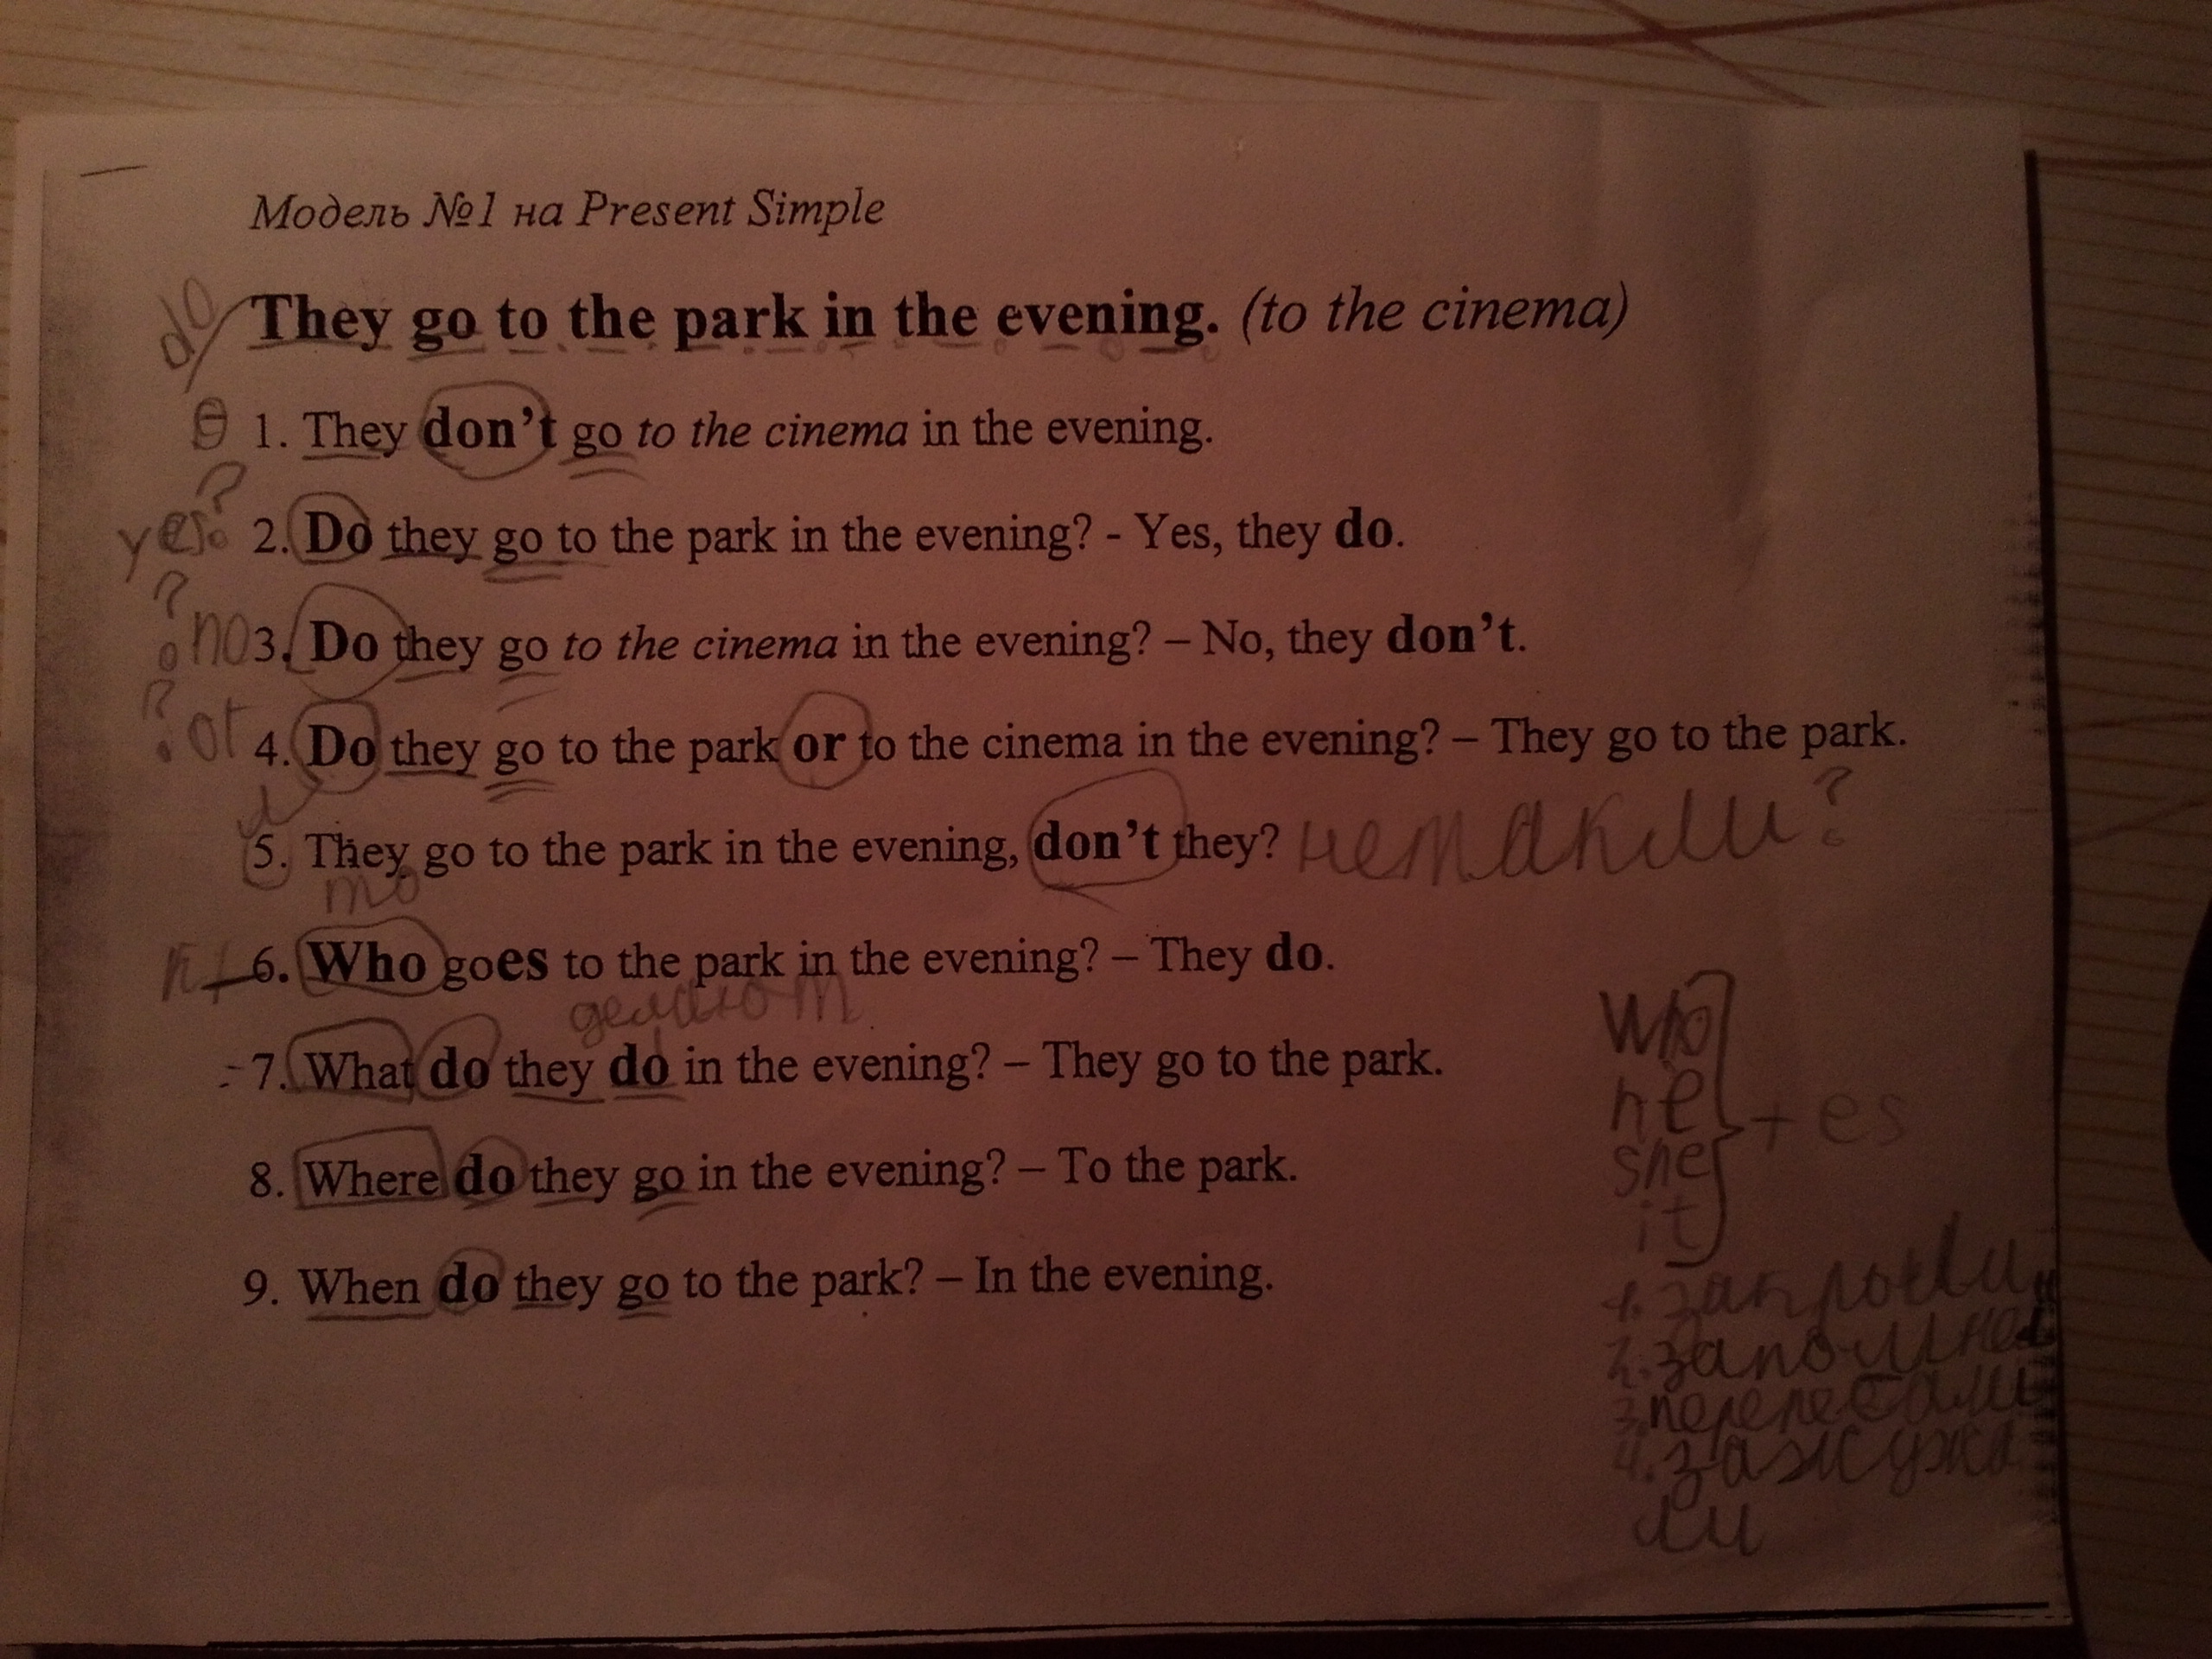 Модель №1 на Present Simple
do
They go to the park in the evening. (to the cinema)
1. They don't go to the cinema in the evening.
yes? 2. Do they go to the park in the evening? - Yes, they do.
? no 3. Do they go to the cinema in the evening? – No, they don't.
? or 4. Do they go to the park or to the cinema in the evening? – They go to the park.
5. They go to the park in the evening, don't they? не так ли?
6. Who goes to the park in the evening? – They do.
делают
7. What do they do in the evening? – They go to the park.
8. Where do they go in the evening? – To the park.
9. When do they go to the park? – In the evening.
who
he
she
it
+ es
1. закрыли
2.
3.
4.
ли